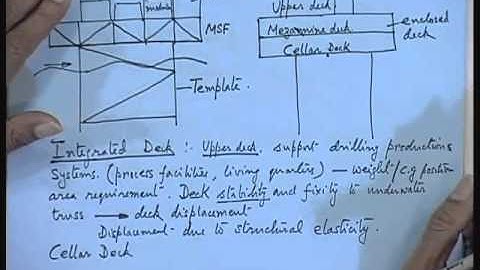 Upper deck
module
MSF
Mezannine deck
enclosed
deck
Cellar Deck
Template.
Integrated Deck :- Upper deck. support drilling productions
Systems. (process facilities, living quarters) — weight/c.g position
area requirement. Deck stability and fixity to underwater
truss → deck displacement
Displacement due to structural elasticity.
Cellar Deck